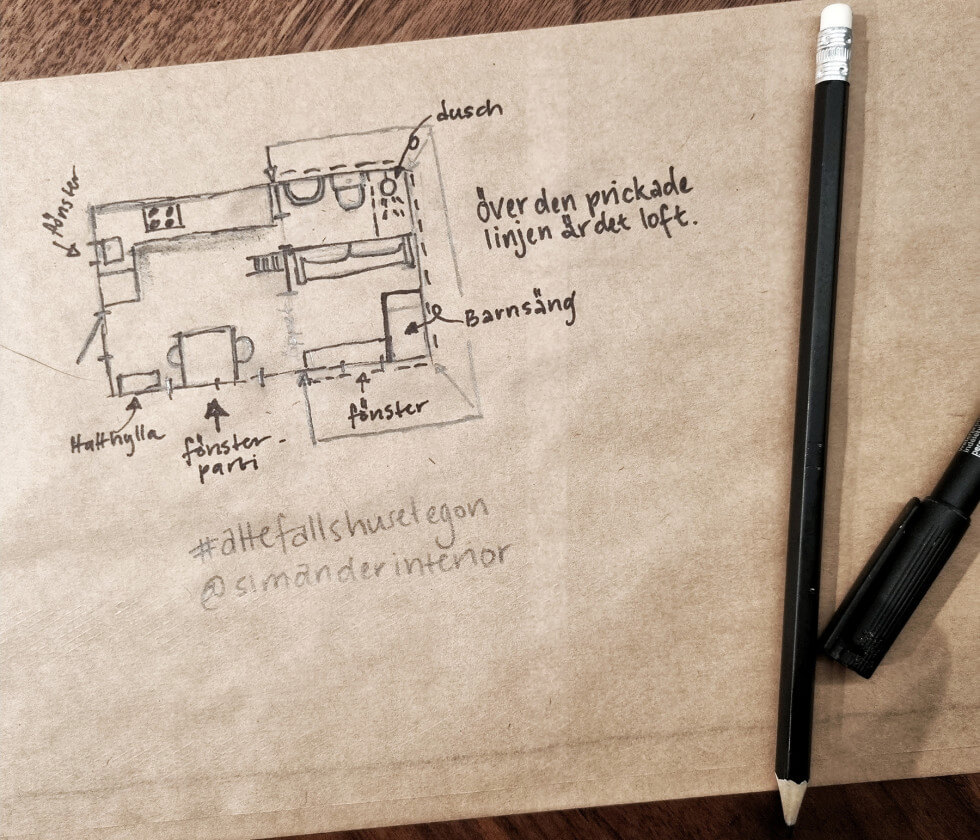 dusch
fönster
över den prickade
linjen är det loft.
Barnsäng
fönster
Hatthylla
fönster-
parti
#attefallshusetegon
@simanderinterior